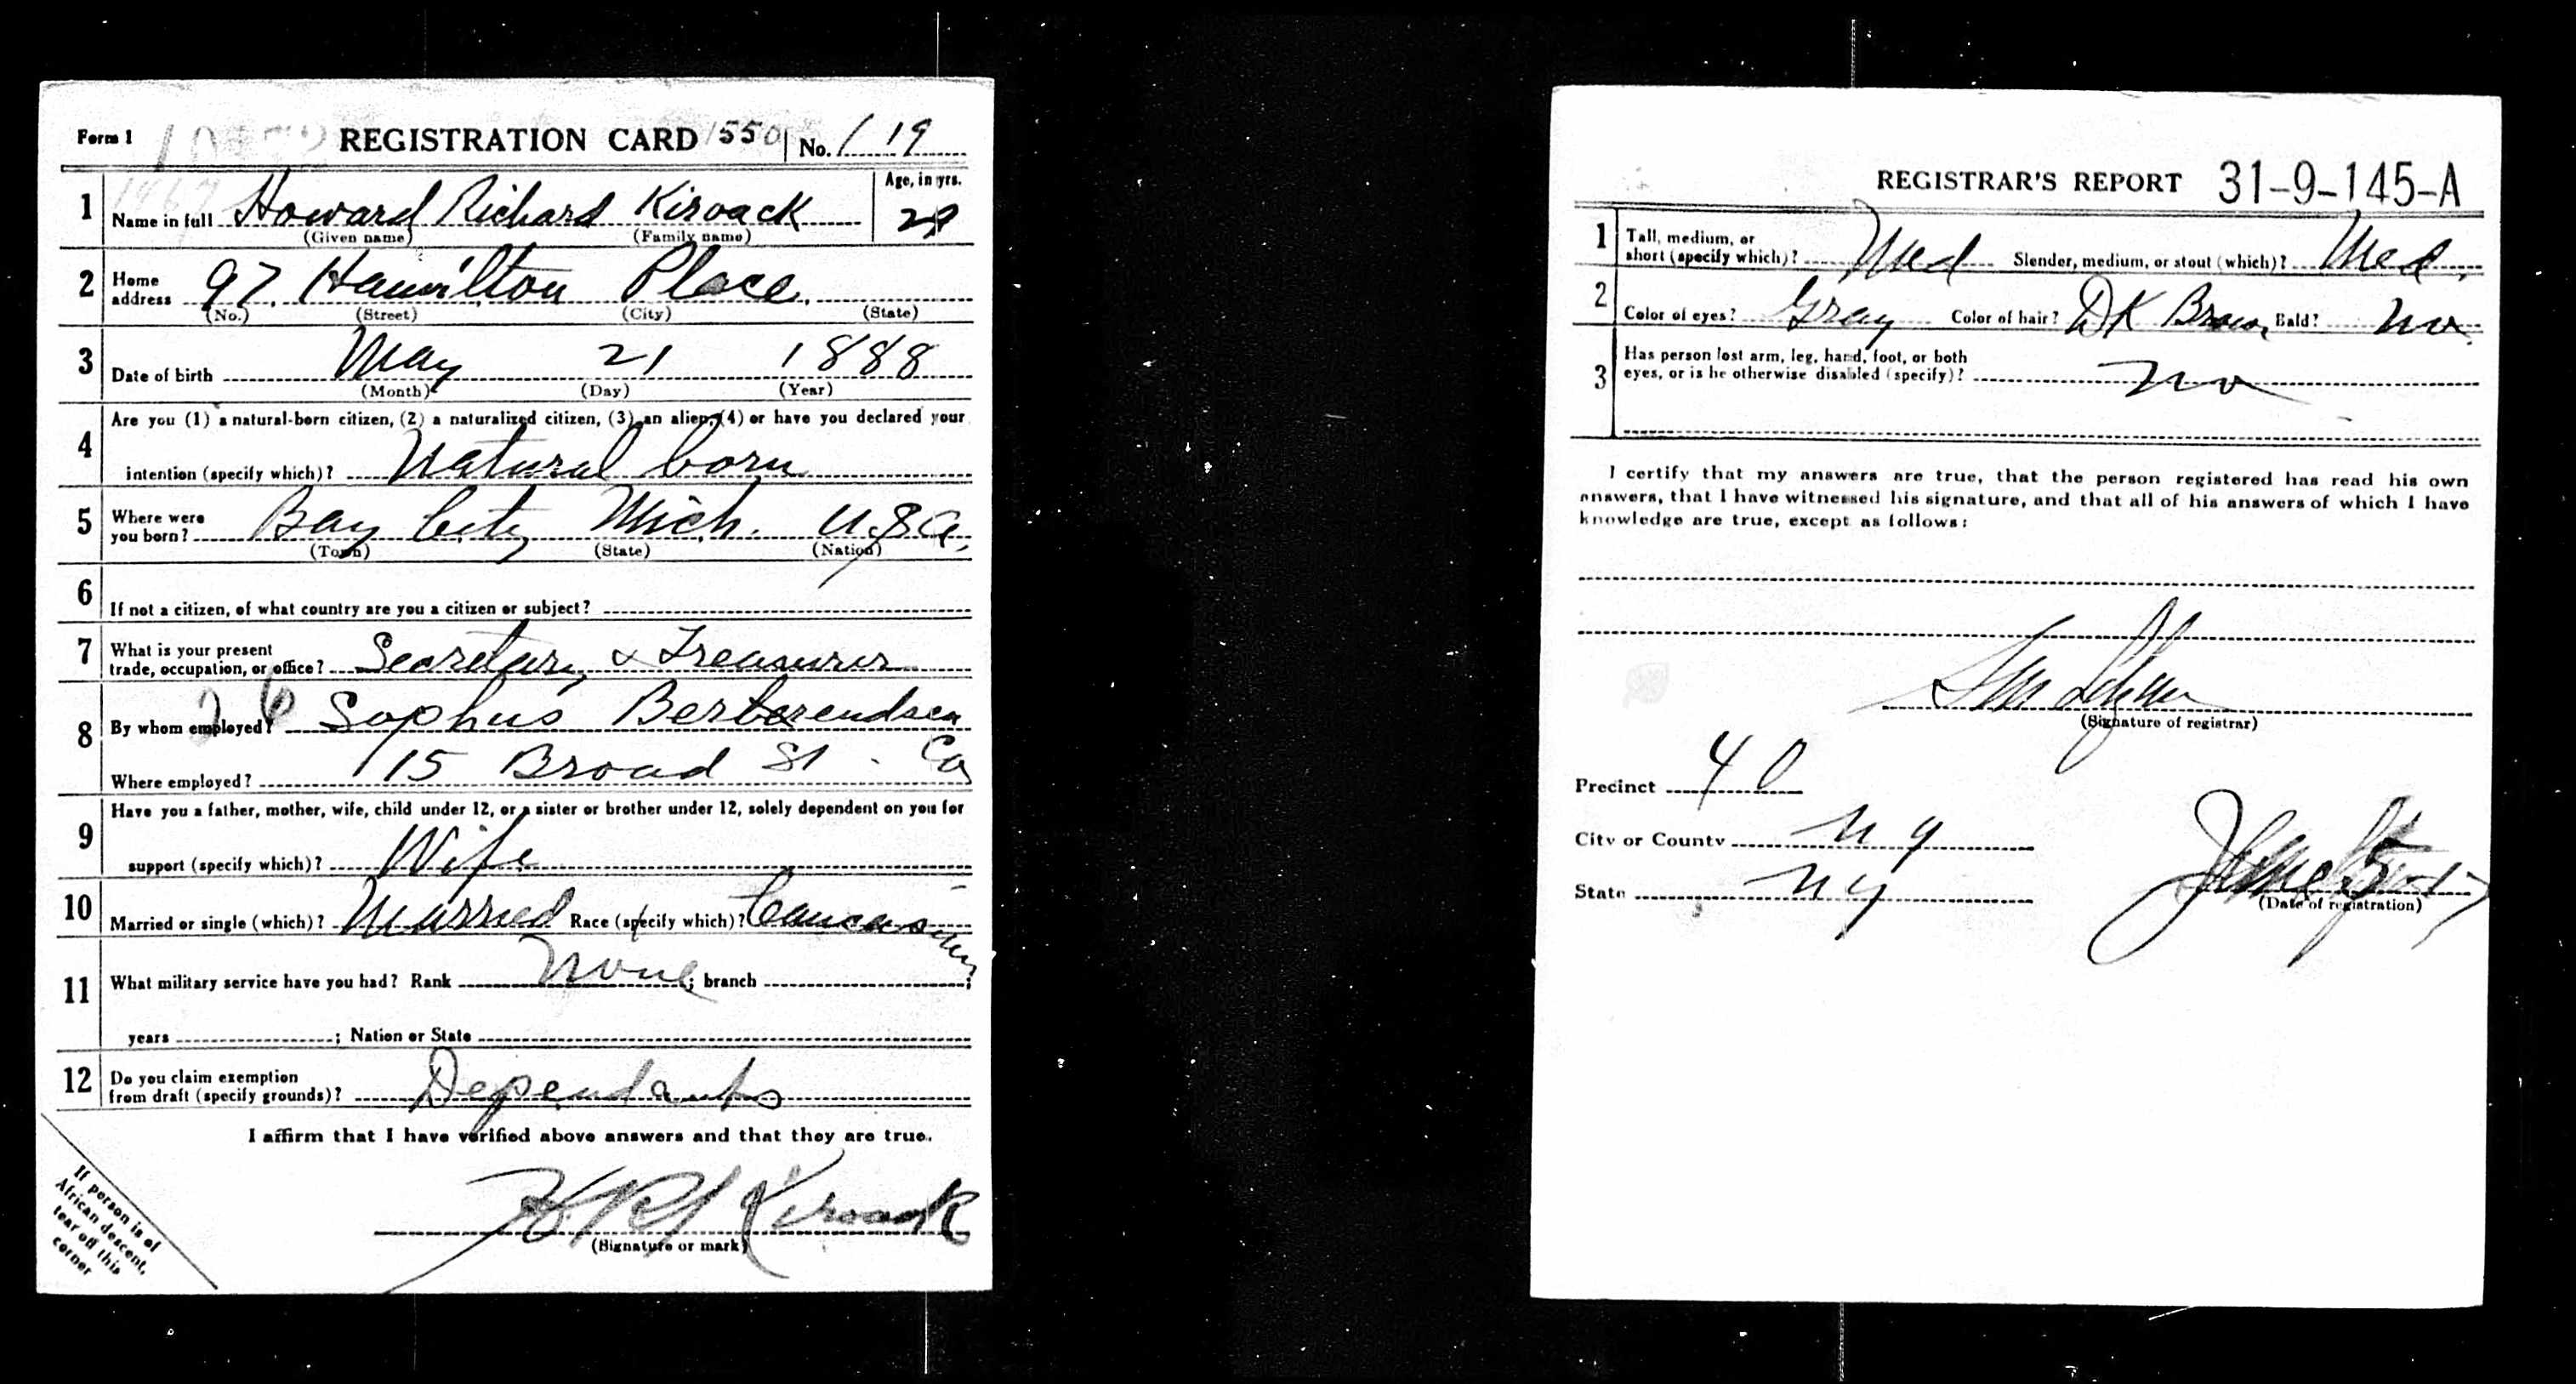 Form 1 REGISTRATION CARD 1550 No. 119
1 Name in full Howard Richard Kirvack Age, in yrs.
(Given name) (Family name) 29
2 Home address 97 Hamilton Place
(No.) (Street) (City) (State)
3 Date of birth May 21 1888
(Month) (Day) (Year)
4 Are you (1) a natural-born citizen, (2) a naturalized citizen, (3) an alien, (4) or have you declared your
intention (specify which)? Natural born
5 Where were you born? Bay City Mich. U.S.A.
(Town) (State) (Nation)
6 If not a citizen, of what country are you a citizen or subject?
7 What is your present
trade, occupation, or office? Secretary & Treasurer
8 By whom employed? Sophus Berendsen
Where employed? 115 Broad St. Co
9 Have you a father, mother, wife, child under 12, or a sister or brother under 12, solely dependent on you for
support (specify which)? Wife
10 Married or single (which)? Married Race (specify which)? Caucasian
11 What military service have you had? Rank None; branch ;
years ; Nation or State
12 Do you claim exemption
from draft (specify grounds)? Dependants
I affirm that I have verified above answers and that they are true.
H R Kirvack
(Signature or mark)
If person is of
African descent,
tear off this
corner
REGISTRAR'S REPORT 31-9-145-A
1 Tall, medium, or
short (specify which)? Med Slender, medium, or stout (which)? Med.
2 Color of eyes? Gray Color of hair? DK Brown Bald? No
3 Has person lost arm, leg, hand, foot, or both
eyes, or is he otherwise disabled (specify)? No
I certify that my answers are true, that the person registered has read his own
answers, that I have witnessed his signature, and that all of his answers of which I have
knowledge are true, except as follows:
(Signature of registrar)
Precinct 40
City or County N Y
State N Y
June 5-17
(Date of registration)